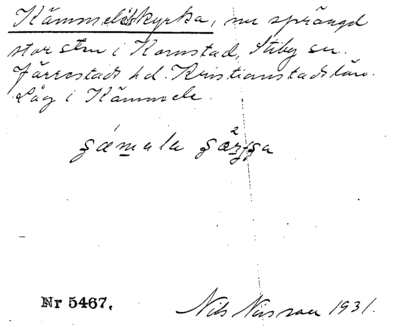 Kämmelskyrka, nu sprängd
stor sten i Komstad, Stiby sn.
Järrestads hd. Kristianstads län.
Låg i Kämmele.
Nr 5467.
Nils Nilsson 1931.